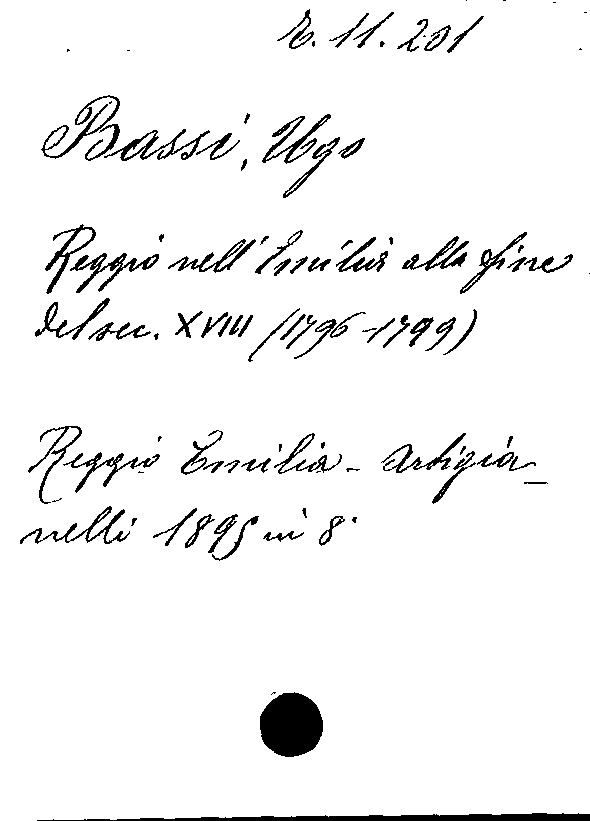 E. 11. 201
Bassi, Ugo
Reggio nell'Emilia alla fine
del sec. XVIII (1796-1799)
Reggio Emilia - Artigia_
nelli 1895 in 8°